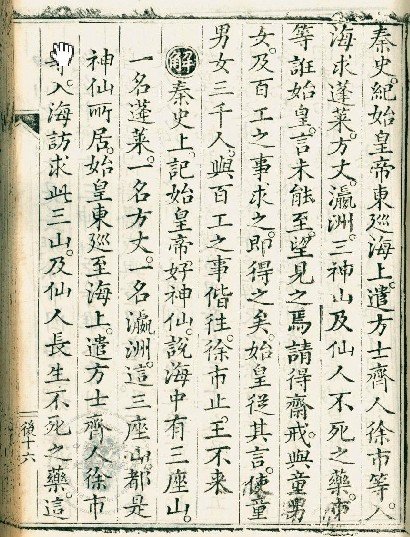 秦史。紀始皇帝東廵海上。遣方士齊人徐市等。入
海求蓬萊。方丈。瀛洲。三神山及仙人不死之藥。市
等誑始皇。言未能至。望見之焉。請得齋戒。與童男
女。及百工之事求之。即得之矣。始皇從其言。使童
男女三千人。與百工之事偕往。徐市止。王不来
解秦史上。記始皇帝好神仙。說海中有三座山。
一名蓬萊。一名方丈。一名瀛洲。這三座山。都是
神仙所居。始皇東廵至海上。遣方士齊人徐市
等。入海訪求此三山。及仙人長生不死之藥。這
後十六